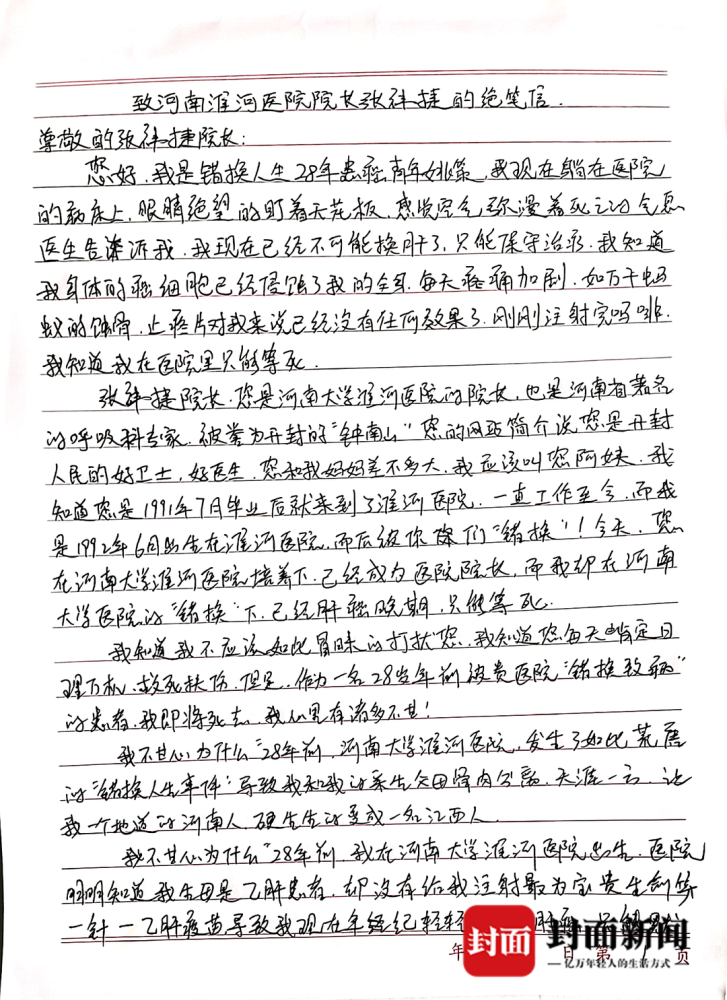 致河南淮河医院院长张祥捷的绝笔信.
尊敬的张祥捷院长:
您好.我是错换人生28年患癌青年姚策,我现在躺在医院
的病床上,眼睛绝望的盯着天花板,感觉空气弥漫着死亡的气息
医生告诉我,我现在已经不可能换肝了,只能保守治疗.我知道
我身体的癌细胞已经侵蚀了我的全身.每天疼痛加剧.如万千蚂
蚁的蚀骨,止疼片对我来说已经没有任何效果了.刚刚注射完吗啡.
我知道我在医院里只能等死.
张祥捷院长.您是河南大学淮河医院的院长,也是河南省著名
的呼吸科专家.被誉为开封的“钟南山”您的网页简介说您是开封
人民的好卫士,好医生.您和我妈妈差不多大,我应该叫您阿姨.我
知道您是1991年7月毕业后就来到了淮河医院.一直工作至今.而我
是1992年6月出生在淮河医院,而后被你院们“错换”!今天,您
在河南大学淮河医院培养下.已经成为医院院长,而我却在河南
大学医院的“错换”下.已经肝癌晚期.只能等死.
我知道我不应该如此冒昧的打扰您,我知道您每天肯定日
理万机.救死扶伤.但是.作为一名28岁年前被贵医院“错换致病”
的患者.我即将死去.我心里有诸多不甘!
我不甘心为什么“28年前.河南大学淮河医院,发生了如此荒唐
的“错换人生事件”导致我和我的亲生父母骨肉分离.天涯一方.让
我一个地道的河南人.硬生生的变成一名江西人.
我不甘心为什么“28年前.我在河南大学淮河医院出生.医院
明明知道我生母是乙肝患者.却没有给我注射最为宝贵生命第
一针一乙肝疫苗导致我现在年纪轻轻
年 日 第 页
封面 封面新闻
—亿万年轻人的生活方式—